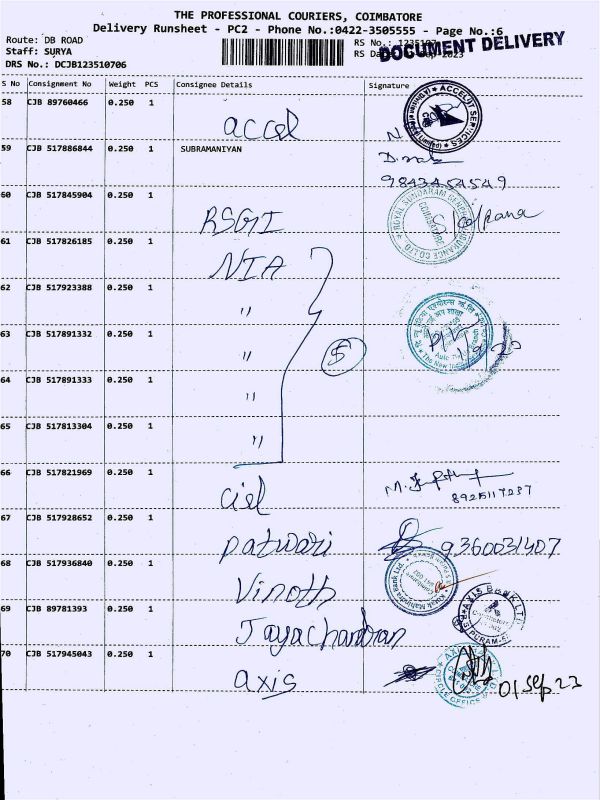 THE PROFESSIONAL COURIERS, COIMBATORE
Delivery Runsheet - PC2 - Phone No.:0422-3505555 - Page No.:6
Route: DB ROAD
Staff: SURYA
DRS No.: DCJB123510706
RS No.:
RS
DOCUMENT DELIVERY
S No Consignment No Weight PCS Consignee Details Signature
58 CJB 89760466 0.250 1 accel
ACCEL SERVICES
59 CJB 517886844 0.250 1 SUBRAMANIYAN
9843454549
60 CJB 517845904 0.250 1 RSGI
ROYAL SUNDARAM GENERAL INSURANCE CO LTD
COIMBATORE
61 CJB 517826185 0.250 1 NIA
62 CJB 517923388 0.250 1 "
63 CJB 517891332 0.250 1 " 5
The New
64 CJB 517891333 0.250 1 "
65 CJB 517813304 0.250 1 "
66 CJB 517821969 0.250 1 Ciel
8925117237
67 CJB 517928652 0.250 1 Patwari 9360031407
68 CJB 517936840 0.250 1 Vinoth
Kotak Mahindra Bank Ltd.
69 CJB 89781393 0.250 1 Jayachandran
AXIS BANK LTD
70 CJB 517945043 0.250 1 axis
CIRCLE OFFICE
01 Sep 23